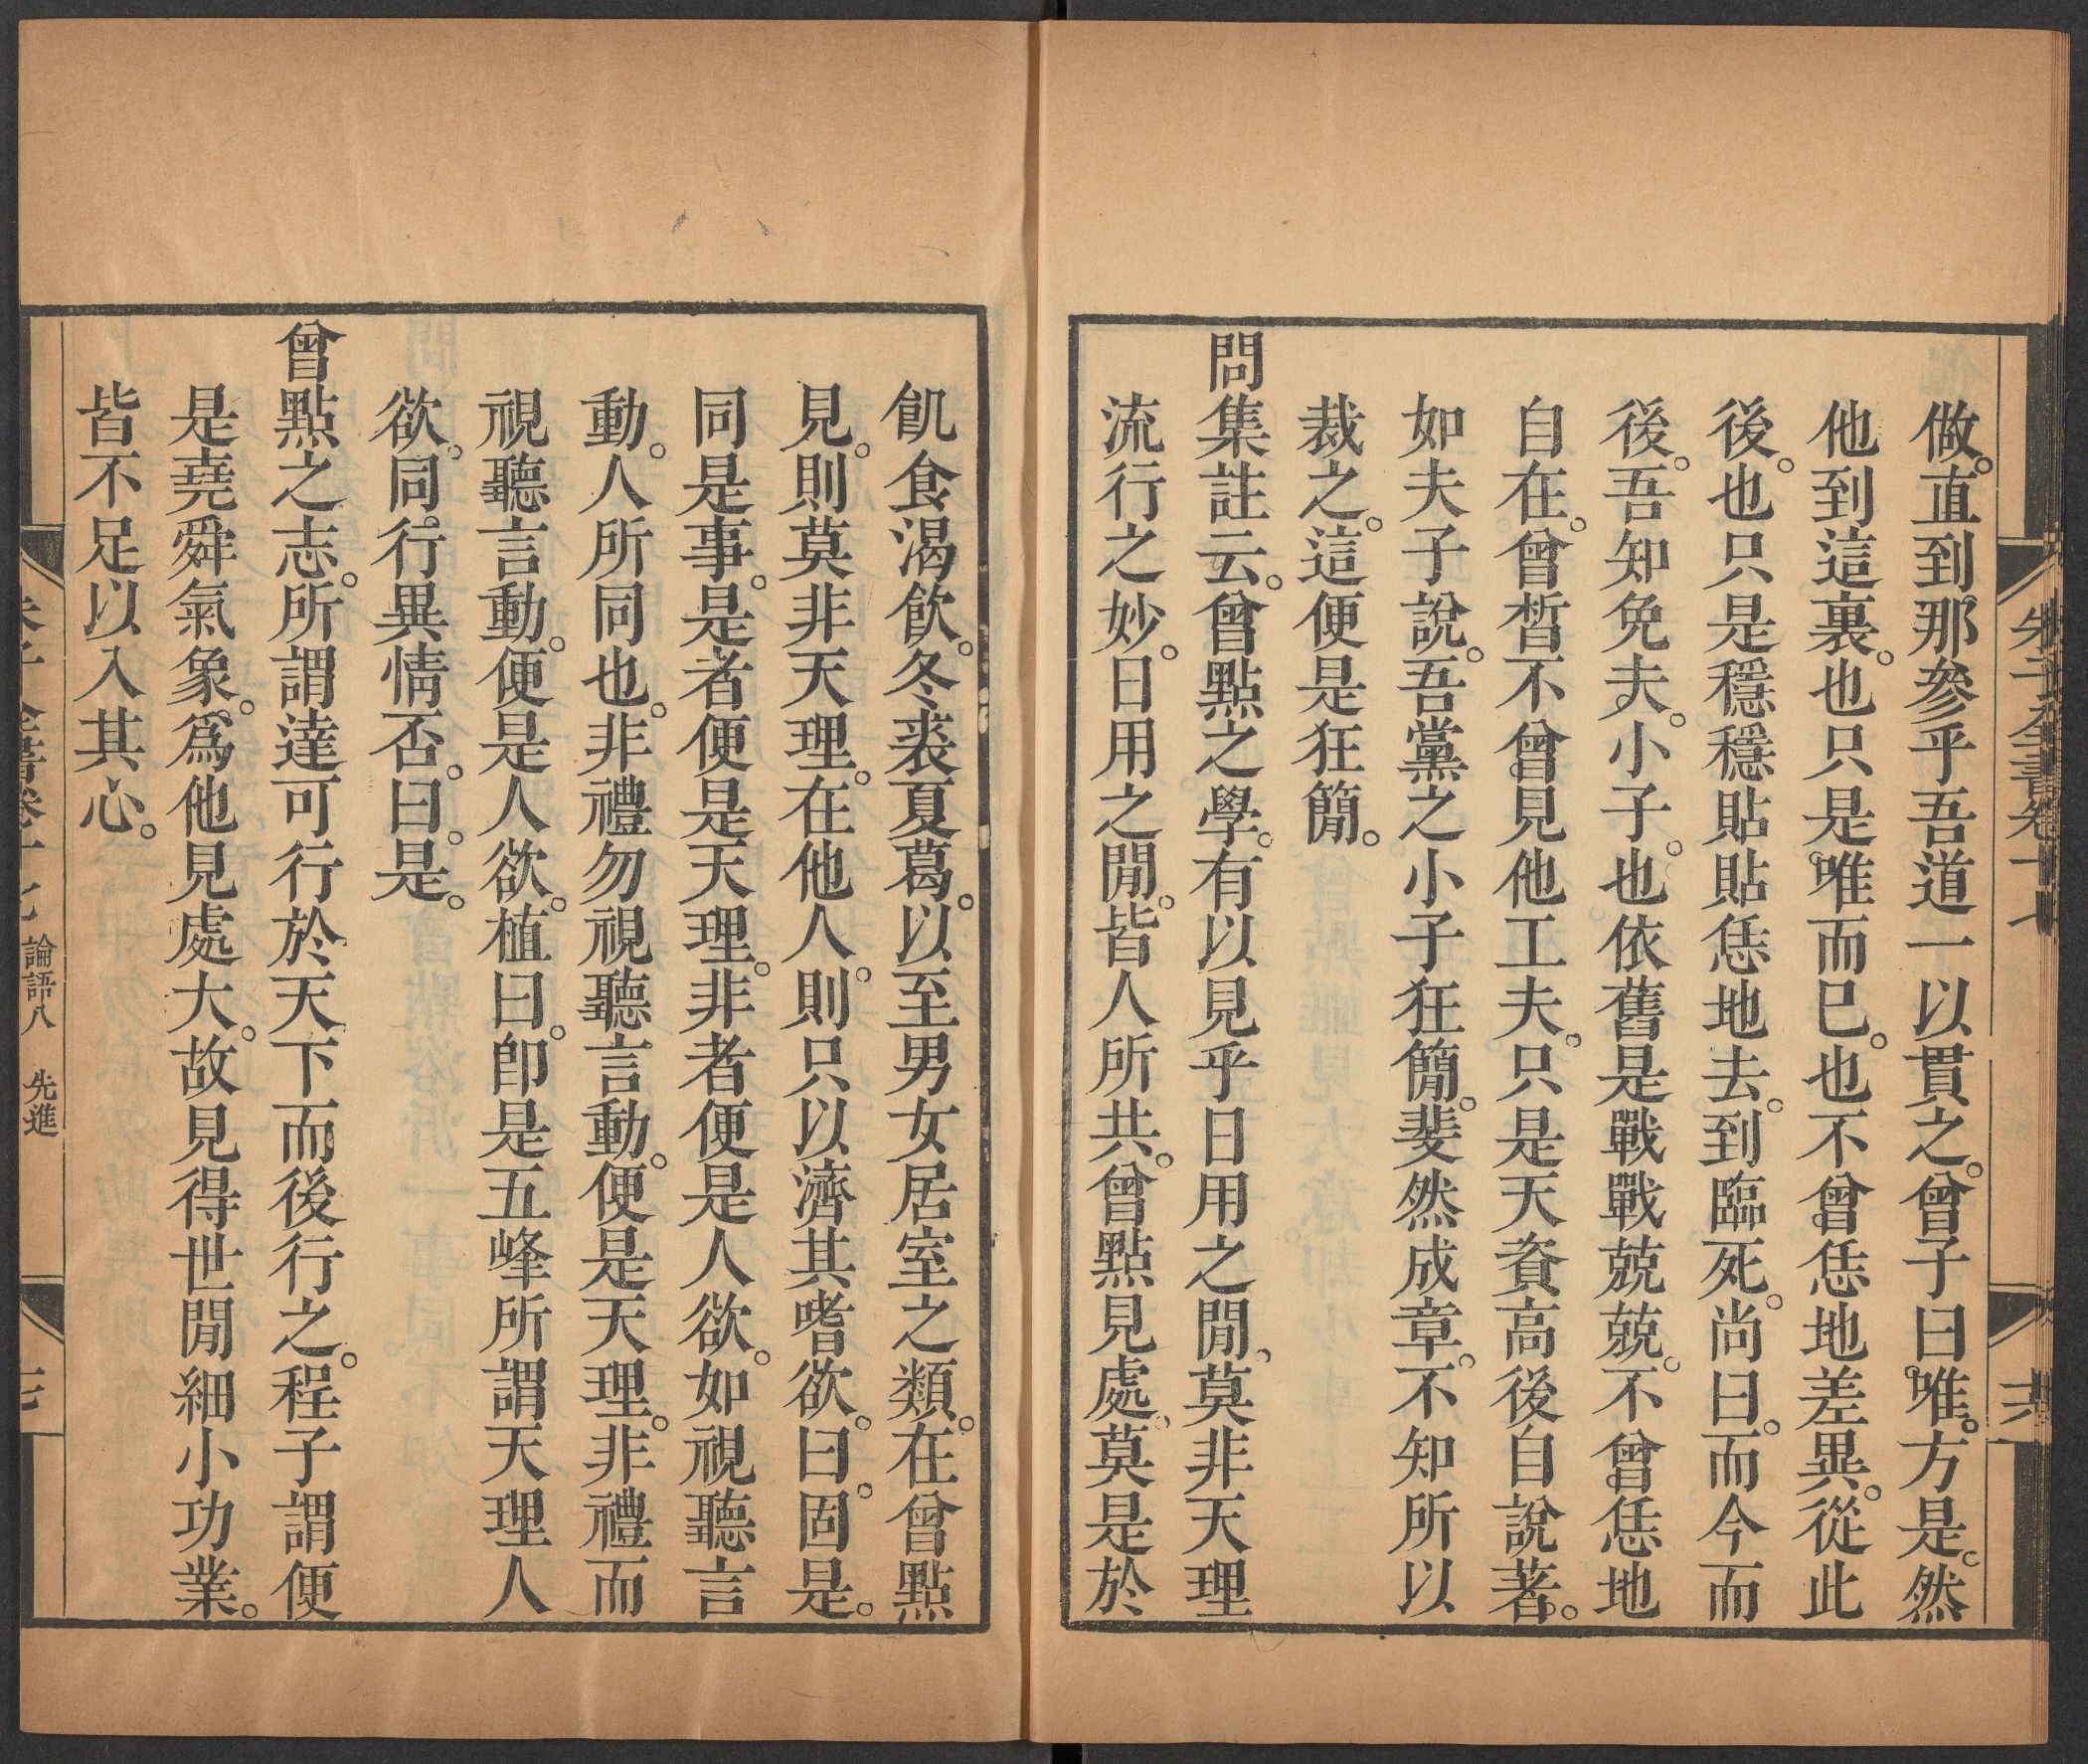 做。直到那參乎吾道一以貫之。曾子曰。唯。方是。然
他到這裏。也只是。唯而已。也不曾恁地差異。從此
後。也只是穩穩貼貼恁地去。到臨死。尚曰。而今而
後。吾知免夫。小子。也依舊是戰戰兢兢。不曾恁地
自在。曾晳不曾見他工夫。只是天資高後自說著。
如夫子說。吾黨之小子狂簡。斐然成章。不知所以
裁之。這便是狂簡。
問集註云。曾點之學。有以見乎日用之閒、莫非天理
流行之妙。日用之閒。皆人所共。曾點見處、莫是於
飢食渴飲。冬裘夏葛。以至男女居室之類。在曾點
見。則莫非天理。在他人。則只以濟其嗜欲。曰。固是。
同是事。是者便是天理。非者便是人欲。如視聽言
動。人所同也。非禮勿視聽言動。便是天理。非禮而
視聽言動。便是人欲。植曰。卽是五峰所謂天理人
欲、同行異情否。曰。是。
曾點之志。所謂達可行於天下而後行之。程子謂便
是堯舜氣象。爲他見處大。故見得世閒細小功業。
皆不足以入其心。
朱子全書卷十七
論語八 先進